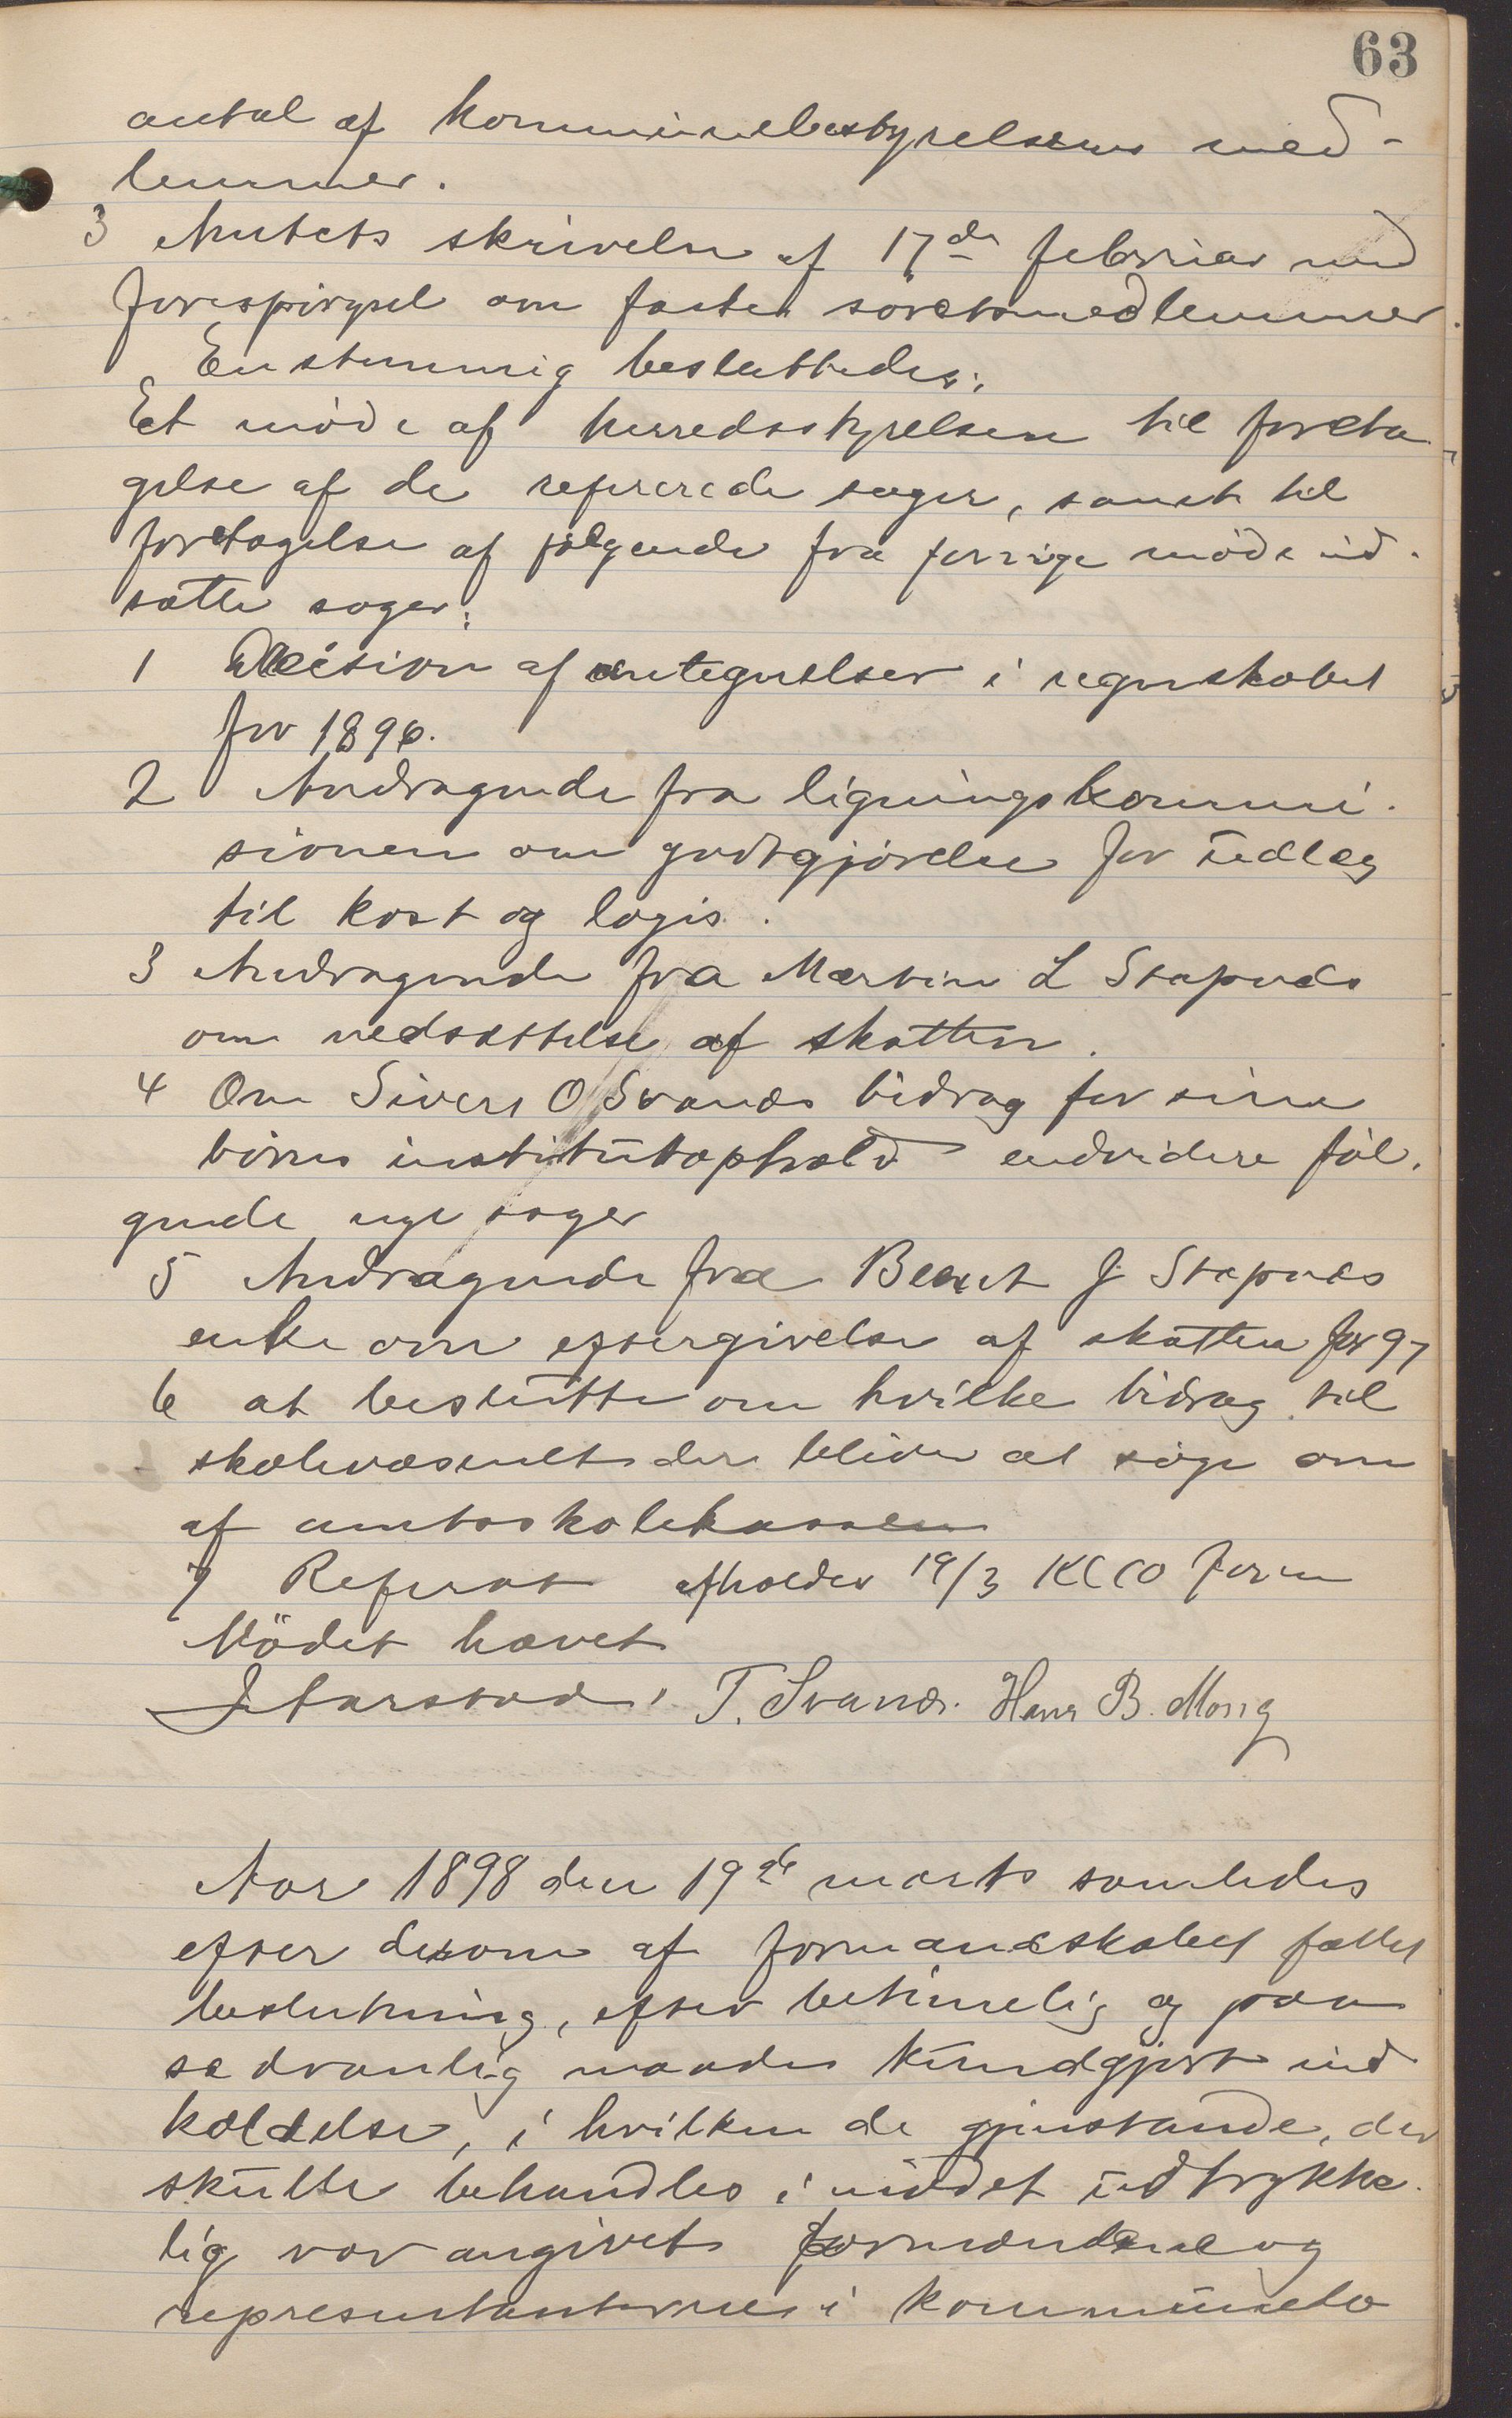 63
antal af kommunebestyrelsens med-
lemmer.
3 Amtets skrivelse af 17de februar med
forespørgsel om faste søretsmedlemmer.
Enstemmig besluttedes:
Et møde af herredsstyrelsen til foreta-
gelse af de refererede sager, samt til
foretagelse af følgende fra forrige møde ud-
satte sager:
1 Decision af antegnelser i regnskabet
for 1896.
2 Andragende fra ligningskommi-
sionen om godtgjørelse for udlæg
til kost og logis.
3 Andragende fra Martin L Stapnæs
om nedsættelse af skatten.
4 Om Sivert O Svanæs bidrag for sine
børns institutophold endvidere føl-
gende nye sager
5 Andragende fra Berent J Stapnæs
enke om eftergivelse af skatten for 97
6 at beslutte om hvilke bidrag til
skolevæsenet der bliver at søge om
af amtsskolekassen
7 Referat afholdes 19/3 Kl 10 form
Mødet hævet
J Aarstad, T. Svanæs. Hans B. Mong
Aar 1898 den 19de marts samledes
efter derom af formandskabet fattet
beslutning, efter betimelig og paa
sædvanlig maade kundgjort ind
kaldelse, i hvilken de gjenstande, der
skulle behandles i mødet udtrykke-
lig var angivet formændene og
representanterne i kommune